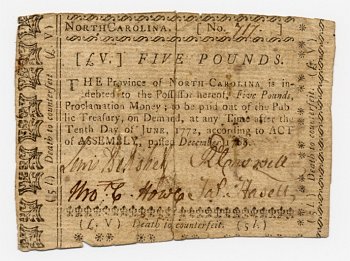 NORTH CAROLINA. [ No. 717.
[£V.] FIVE POUNDS.
THE Province of NORTH-CAROLINA, is in-
debted to the Possessor hereof, Five Pounds,
Proclamation Money; to be paid out of the Pub
lic Treasury, on Demand, at any Time after the
Tenth Day of JUNE, 1772, according to ACT
of ASSEMBLY, passed December 1768.
Lewis De Rosset
Rd Caswell
Tho. C. Howe
(£.V) Death to counterfeit. (5 £)
(5£) Death to counterfeit (£.V)
Death to counterfeit